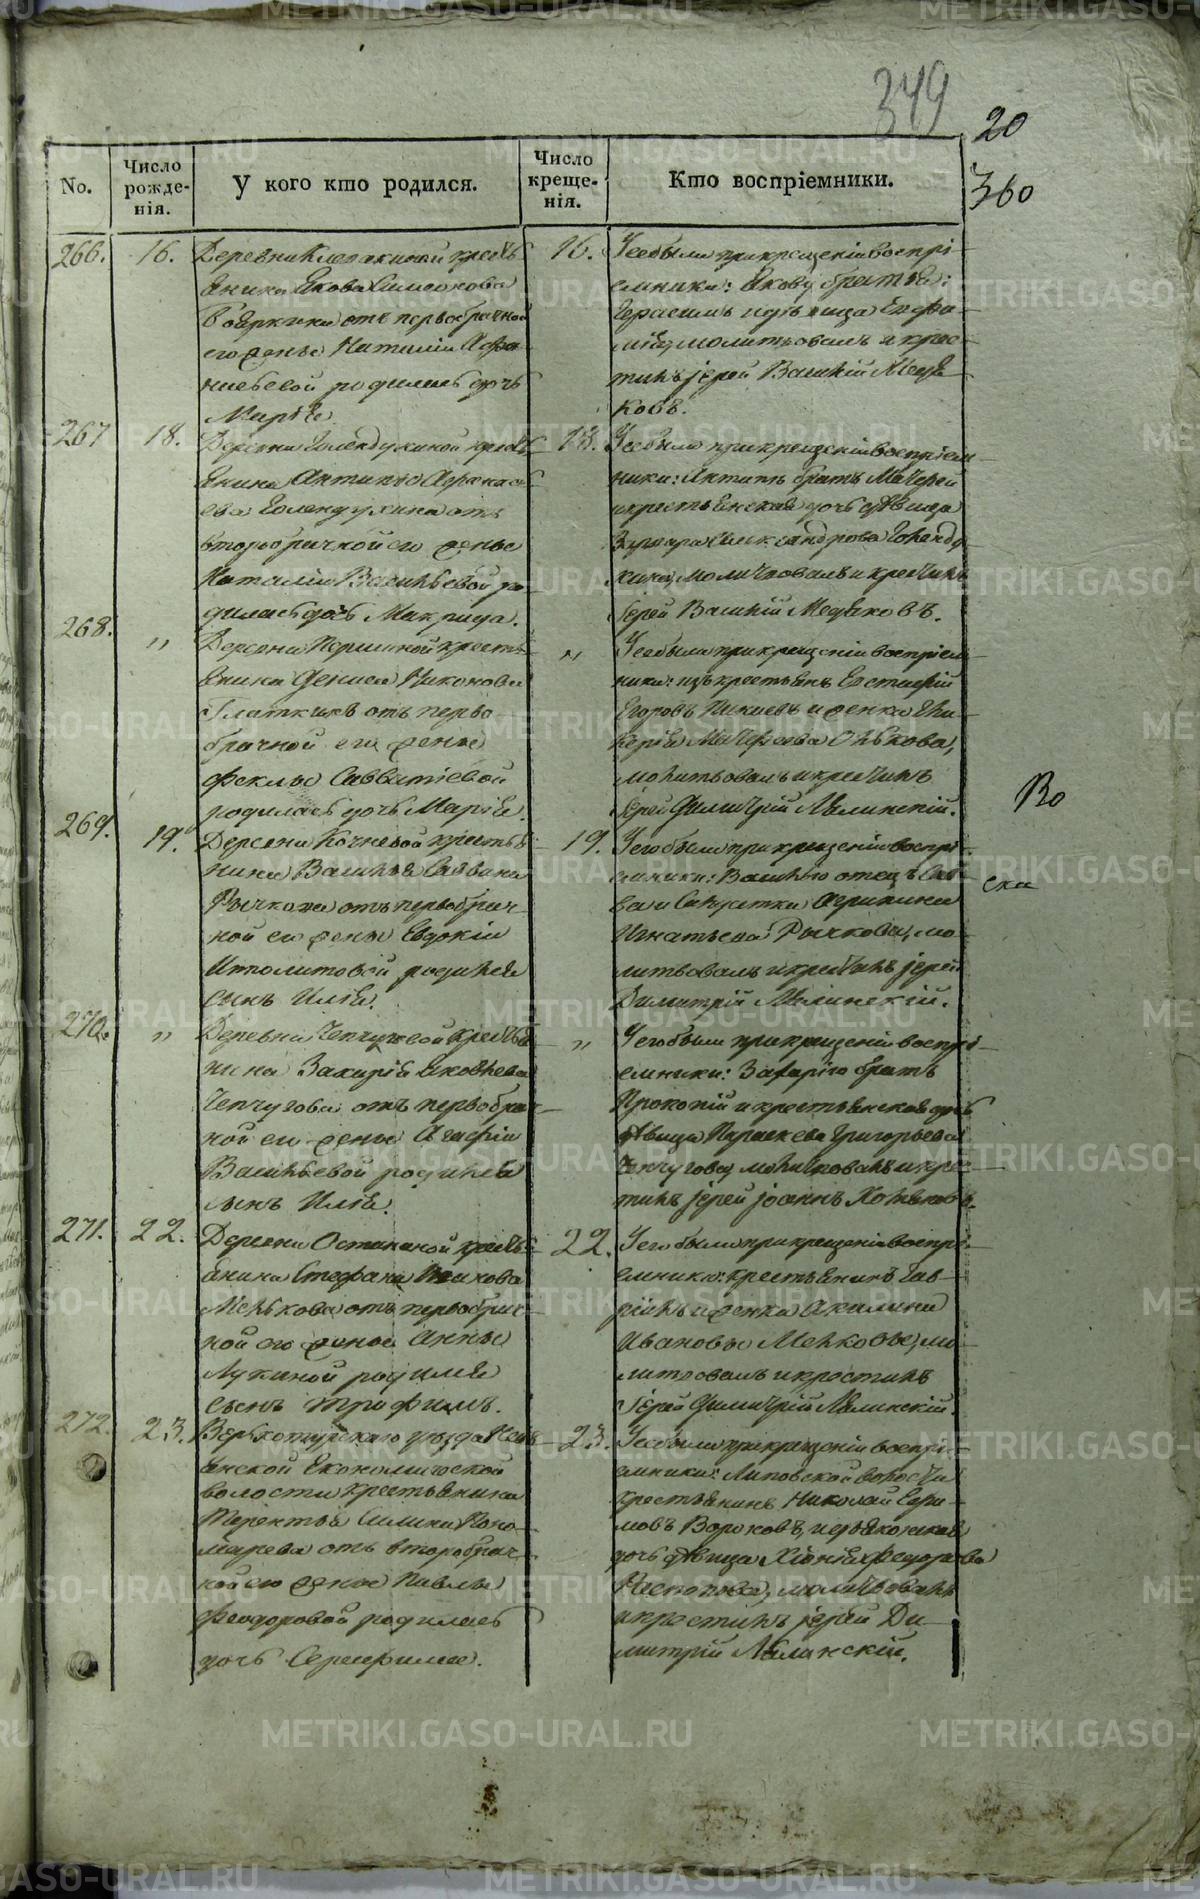 349
20
360
No.
Число рожденія.
У кого кто родился.
Число крещенія.
Кто воспріемники.
266.
16.
Деревни крестъ
янина Якова Симеонова
Бояркина отъ первобрачной
его жены Наталіи Афа-
насьевой родилась дочь
Марія
16.
У ея были при крещеніи воспрі-
емники: Якову братья:
Герасимъ и дѣвица Епфи-
мія, молитвовалъ и крес-
тилъ іерей Василій Медя
ковъ.
267
18.
Деревни Голендухиной кресть
янина Антипы Афанась
ева Голендухина отъ
второбрачной его жены
Наталіи Васильевой ро
дилась дочь Макрида.
18.
У ея были при крещеніи воспріем
ники: Антипъ братъ Матфей
и крестьянская дочь дѣвица
Варвара Александрова Голенду
хина, молитвовалъ и крестилъ
Іерей Василій Медяковъ.
268.
"
Деревни Першиной кресть
янина Дениса Никонова
Глаткихъ отъ перво
брачной его жены
Феклы Савватіевой
родилась дочь Марія.
"
У ея были при крещеніи воспріем
ники: изъ крестьянъ Евстафій
Егоровъ и женка Гли-
керія Матфеева Олькова,
молитвовалъ и крестилъ
Іерей Димитрій Лялинскій.
Во
269.
19.
Деревни Кочневой крестья
нина Василья Саввина
Рычкова отъ первобрач-
ной его жены Евдокіи
Иполитовой родился
сынъ Илія.
19.
У его были при крещеніи воспрі-
емники: Василью отецъ Сав-
ва и Агрипина
Игнатьева Рычкова, мо-
литвовалъ и крестилъ іерей
Димитрій Лялинскій.
ска
270.
"
Деревни Чепчуговой крестья
нина Захарія Яковлева
Чепчугова отъ первобрач-
ной его жены Агафіи
Васильевой родился
сынъ Илія.
"
У его были при крещеніи воспрі-
емники: Захарію братъ
Прокопій и крестьянская дочь
дѣвица Параскева Григорьева
Чепчугова, молитвовалъ и крес-
тилъ іерей Іоаннъ
271.
22.
Деревни Останиной кресть
янина Стефана
Менькова отъ первобрач-
ной его жены Анны
Лукиной родился
сынъ Трофимъ.
22.
У его были при крещеніи воспрі-
емники: крестьянинъ Гав-
ріилъ и женка Акилина
Ивановы Меньковы, мо-
литвовалъ и крестилъ
Іерей Димитрій Лялинскій.
272.
23.
Верхотурскаго уѣзда Невь
янской Економической
волости крестьянина
Терентья Силина Поно-
марева отъ второбрач-
ной его жены Павлы
Феодоровой родилась
дочь Серафима.
23.
У ея были при крещеніи воспрі-
емники: Липовской волости
крестьянинъ Николай Ефи-
мовъ Вороновъ, и
дочь дѣвица Хіонія Федорова
молитвовалъ
и крестилъ іерей Ди
митрій Лялинскій.
METRIKI.GASO-URAL.RU